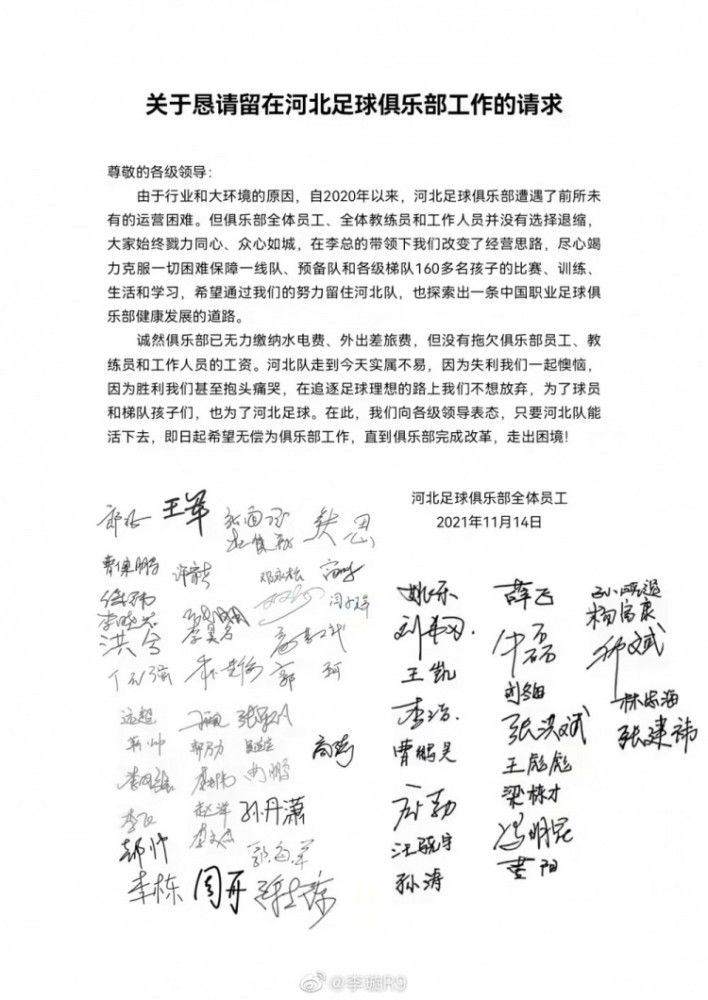 关于恳请留在河北足球俱乐部工作的请求
尊敬的各级领导：
由于行业和大环境的原因，自2020年以来，河北足球俱乐部遭遇了前所未
有的运营困难。但俱乐部全体员工、全体教练员和工作人员并没有选择退缩，
大家始终戮力同心、众心如城，在李总的带领下我们改变了经营思路，尽心竭
力克服一切困难保障一线队、预备队和各级梯队160多名孩子的比赛、训练、
生活和学习，希望通过我们的努力留住河北队，也探索出一条中国职业足球俱
乐部健康发展的道路。
诚然俱乐部已无力缴纳水电费、外出差旅费，但没有拖欠俱乐部员工、教
练员和工作人员的工资。河北队走到今天实属不易，因为失利我们一起懊恼，
因为胜利我们甚至抱头痛哭，在追逐足球理想的路上我们不想放弃，为了球员
和梯队孩子们，也为了河北足球。在此，我们向各级领导表态，只要河北队能
活下去，即日起希望无偿为俱乐部工作，直到俱乐部完成改革，走出困境！
河北足球俱乐部全体员工
2021年11月14日
王军
洪兮
郭珂
远超
孙丹潇
李栋 周开
姚乐 薛飞
杨富康
王凯
李浩
林宏海
曹鹏昊 张洪斌 张建祎
王彪彪
梁栋才
汪骁宇 冯明昆
孙涛 黄阳
@李璇R9